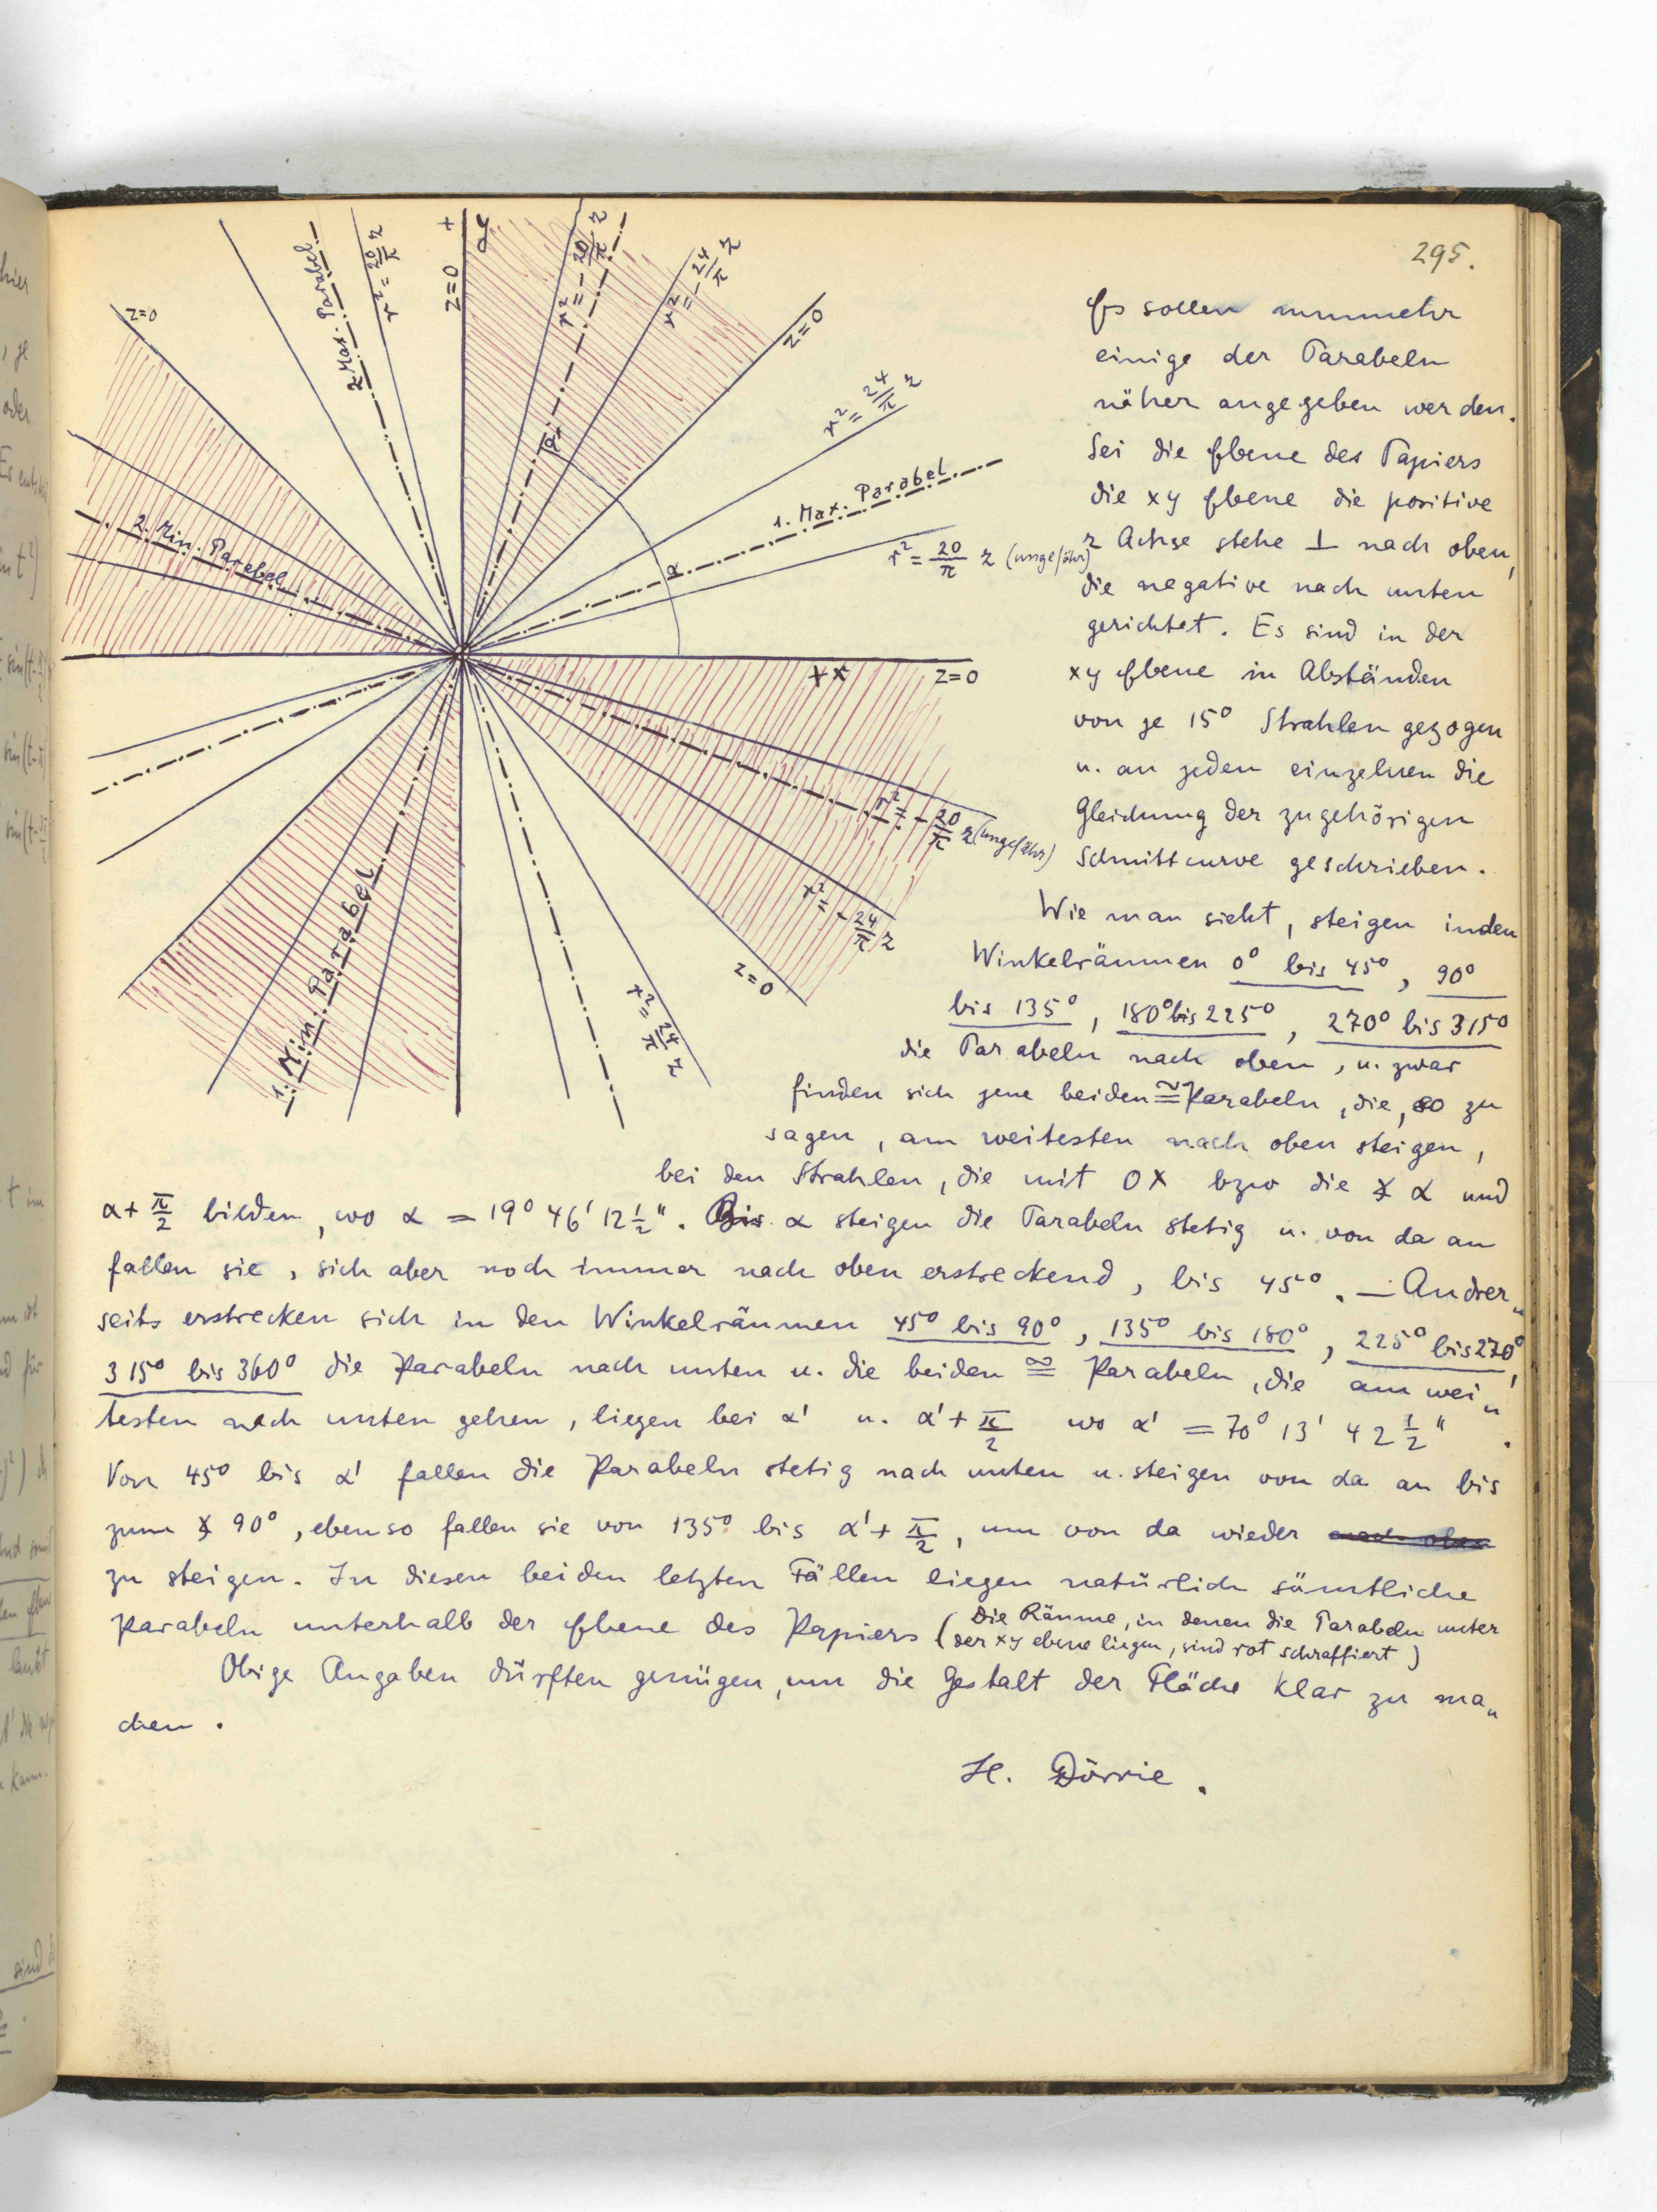 295.
z=0
2. Max. Parabel
r² = 20/π z
+
y
z=0
r² = - 20/π z
r² = - 24/π z
z=0
r² = 24/π z
1. Max. Parabel
r² = 20/π z (ungefähr)
α
α'
2. Min. Parabel
+x
z=0
r² = - 20/π z (ungefähr)
r² = - 24/π z
z=0
r² = 24/π z
1. Min. Parabel
Es sollen nunmehr
einige der Parabeln
näher angegeben werden.
Sei die Ebene des Papiers
die xy Ebene die positive
z Achse stehe ⊥ nach oben,
die negative nach unten
gerichtet. Es sind in der
xy Ebene in Abständen
von je 15° Strahlen gezogen
u. an jeden einzelnen die
Gleichung der zugehörigen
Schnittcurve geschrieben.
Wie man sieht, steigen in den
Winkelräumen 0° bis 45°, 90°
bis 135°, 180° bis 225°, 270° bis 315°
die Parabeln nach oben, u. zwar
finden sich jene beiden ≅ Parabeln, die, so zu
sagen, am weitesten nach oben steigen,
bei den Strahlen, die mit OX bzw die ∢ α und
α + π/2 bilden, wo α = 19° 46' 12 1/2". Bis α steigen die Parabeln stetig u. von da an
fallen sie, sich aber noch immer nach oben erstreckend, bis 45°. — Andrer„
seits erstrecken sich in den Winkelräumen 45° bis 90°, 135° bis 180°, 225° bis 270°,
315° bis 360° die Parabeln nach unten u. die beiden ≅ Parabeln, die am wei„
testen nach unten gehen, liegen bei α' u. α' + π/2 wo α' = 70° 13' 42 1/2".
Von 45° bis α' fallen die Parabeln stetig nach unten u. steigen von da an bis
zum ∢ 90°, ebenso fallen sie von 135° bis α' + π/2, um von da wieder nach oben
zu steigen. In diesen beiden letzten Fällen liegen natürlich sämtliche
Parabeln unterhalb der Ebene des Papiers (Die Räume, in denen die Parabeln unter
der xy ebene liegen, sind rot schraffiert)
Obige Angaben dürften genügen, um die Gestalt der Fläche klar zu ma„
chen.
H. Dörrie.